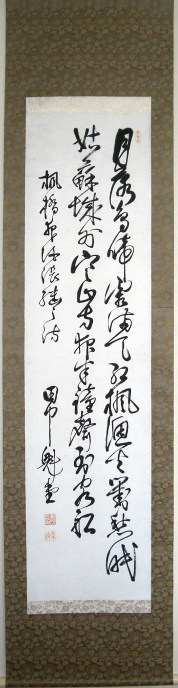 月落烏啼霜満天江楓漁火對愁眠
姑蘇城外寒山寺夜半鐘聲到客船
楓橋夜泊張継之詩
田中塊堂